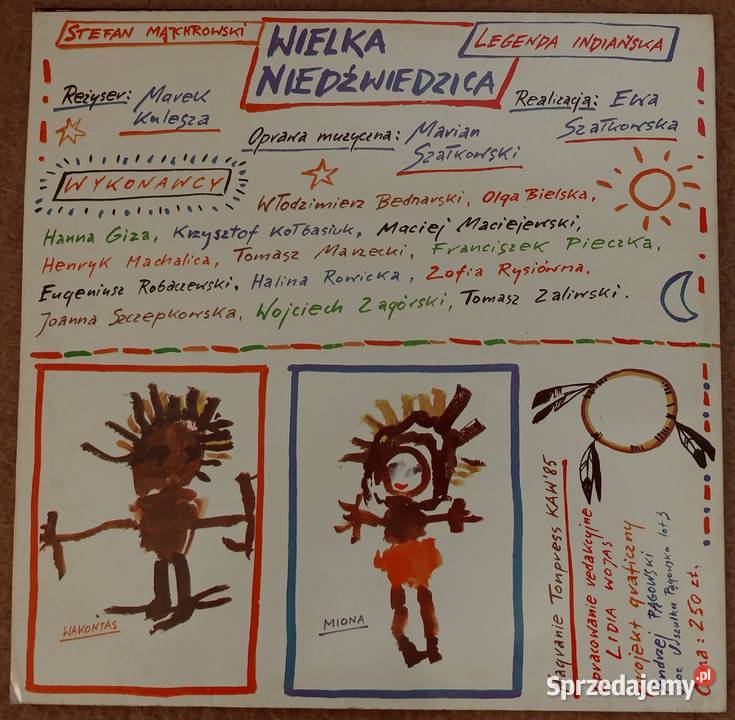 STEFAN MAJCHROWSKI
WIELKA
NIEDŹWIEDZICA
LEGENDA INDIAŃSKA
Reżyser: Marek
Kulesza
Oprawa muzyczna: Marian
Szałkowski
Realizacja: Ewa
Szałkowska
WYKONAWCY
Włodzimierz Bednarski, Olga Bielska,
Hanna Giza, Krzysztof Kołbasiuk, Maciej Maciejewski,
Henryk Machalica, Tomasz Marzecki, Franciszek Pieczka,
Eugeniusz Robaczewski, Halina Rowicka, Zofia Rysiówna,
Joanna Szczepkowska, Wojciech Zagórski, Tomasz Zaliwski.
WAKONTAS
MIONA
Nagranie Tonpress KAW'85
opracowanie redakcyjne
LIDIA WOJAS
projekt graficzny
Andrzej PĄGOWSKI
oraz Urszulka Pągowska lat 3
Cena: 250 zł.
Sprzedajemy.pl